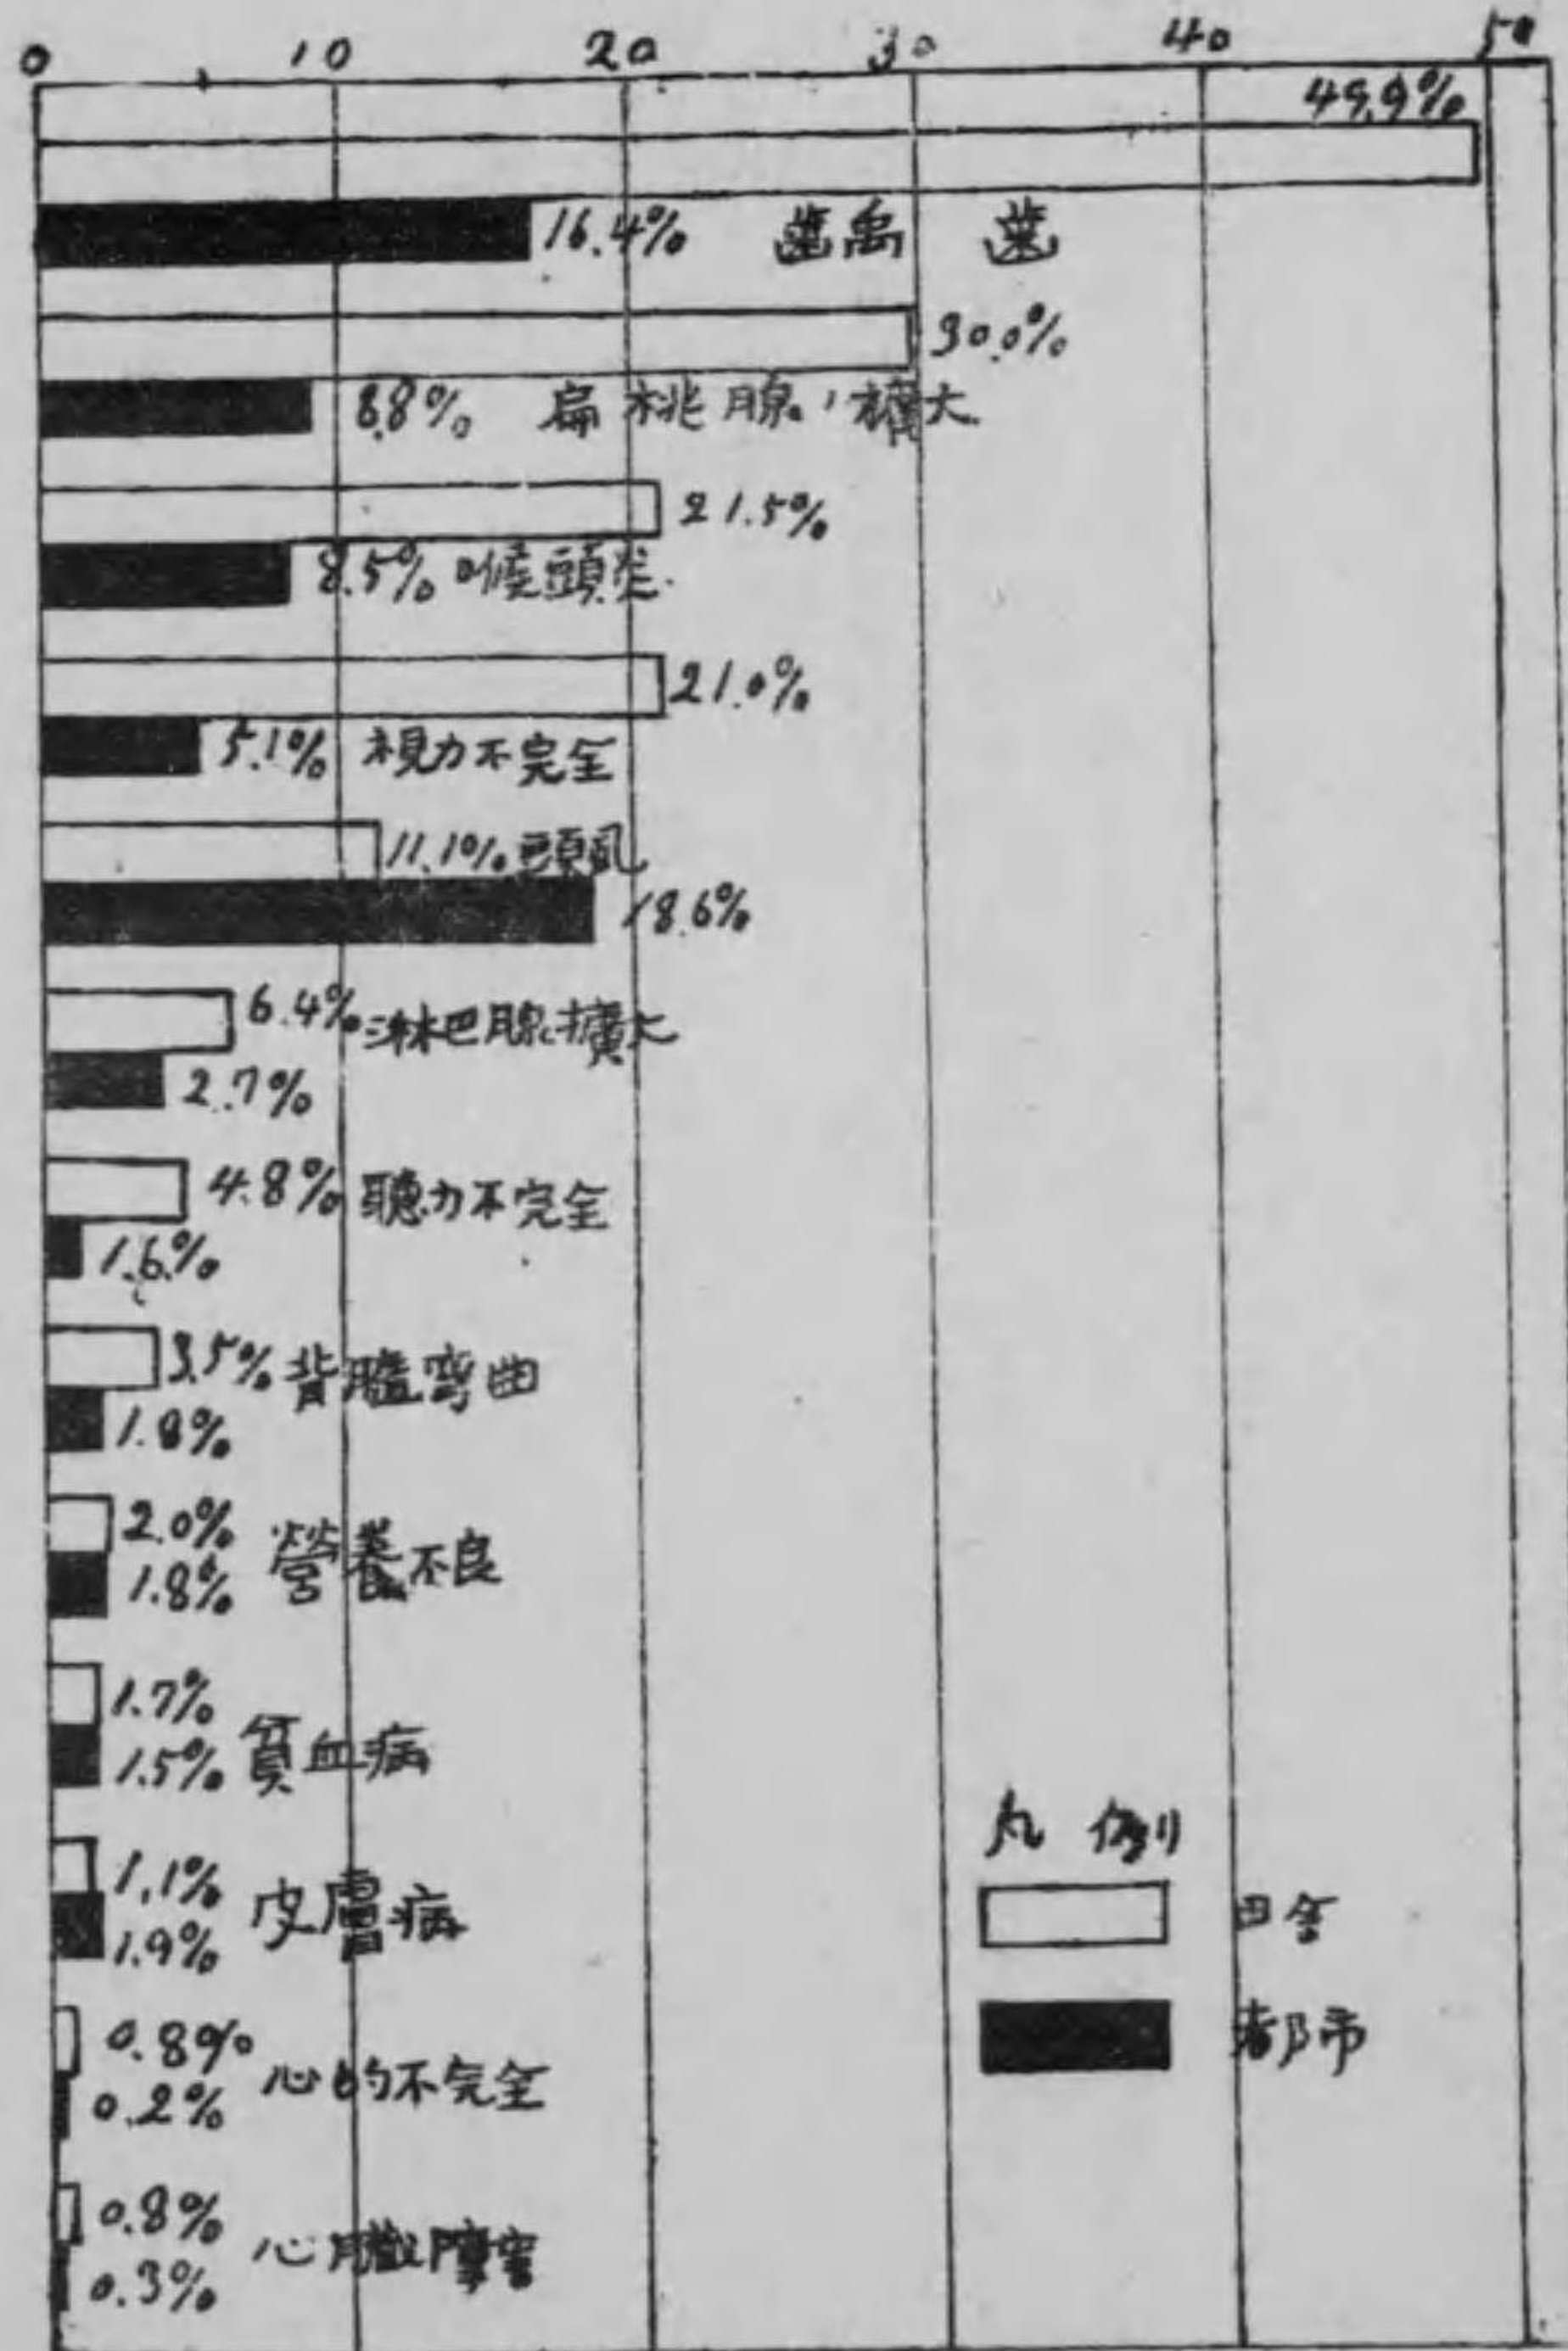 0 10 20 30 40 50
49.9%
16.4% 齲 歯
30.0%
8.8% 扁桃腺ノ擴大
21.5%
8.5% 喉頭炎
21.0%
5.1% 視力不完全
11.1% 頭虱
18.6%
6.4% 淋巴腺擴大
2.7%
4.8% 聽力不完全
1.6%
3.5% 背髓弯曲
1.8%
2.0%
1.8% 營養不良
1.7%
1.5% 貧血病
1.1%
1.9% 皮膚病
0.8%
0.2% 心的不完全
0.8%
0.3% 心臓障害
凡例
田舎
都市